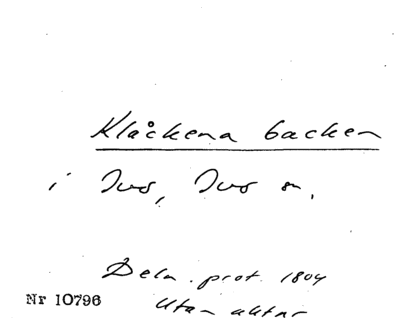 Klåckena backen
i Ivo, Ivo sn.
Deln. prot. 1804
Nr 10796
Utan aktnr